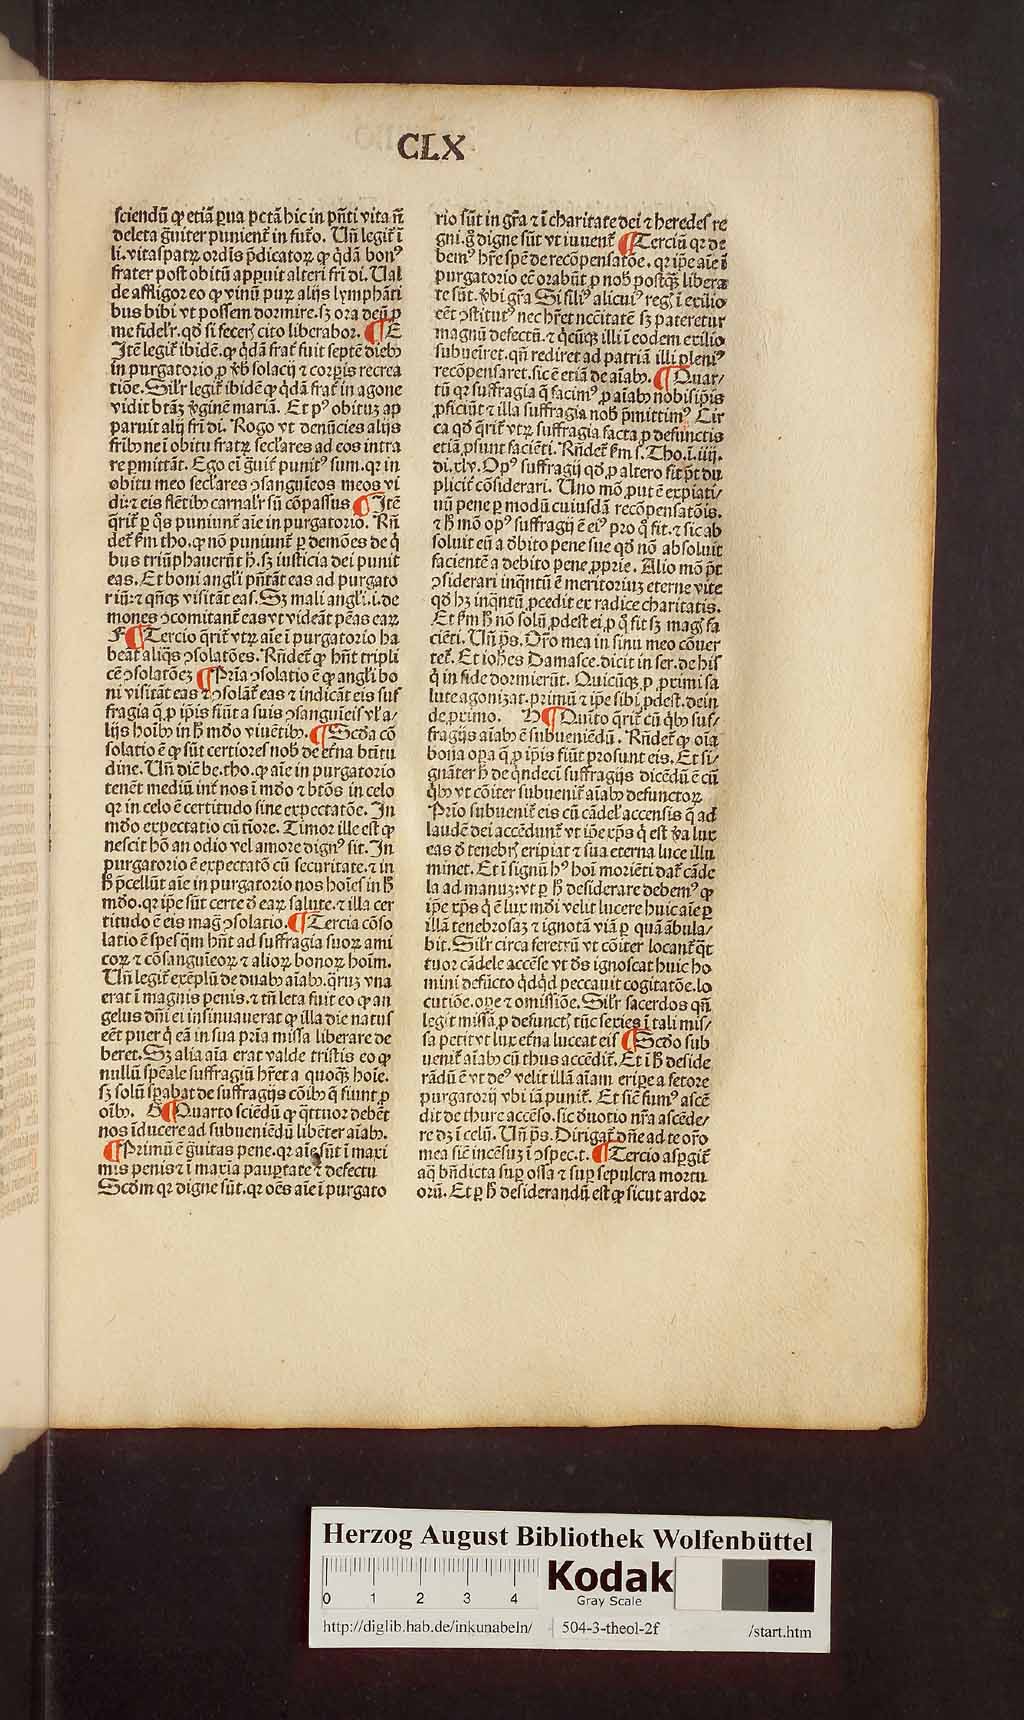 CLX
sciendū ꝙ etiā ꝓua pctā hic in pñti vita nō
deleta grauiter puniunt̄ in fut̄o. Vn̄ legit̄ ī
li. vitaspatꝝ ordīs p̄dicatoꝝ ꝙ qdā bonꝰ
frater post obitū apparuit alteri fr̄i di. Ual
de affligor eo ꝙ vinū puꝝ alijs lymphāti
bus bibi vt possem dormire. sꝫ ora deū ꝓ
me fidel'r. qd̄ si fecerꝭ cito liberabor. ¶ E
Itē legit̄ ibidē. ꝙ qdā frat̄ fuit septē diebꝰ
in purgatorio ꝓ v̄bꝭ solacij ⁊ corpis recrea
tiōe. Sil'r legit̄ ibidē ꝙ qdā frat̄ in agone
vidit btāꝫ v̄ginē mariā. Et pꝰ obituꝫ ap
paruit alij fr̄i di. Rogo vt denūcies alijs
frībꝰ ne ī obitu fratꝝ secl'ares ad eos intra
re ꝑmittāt. Ego eī grauit̄ punitꝰ sum. qꝛ in
obitu meo secl'ares ꝯsanguīeos meos vi
di: ⁊ eis flētibꝰ carnal'r sū cōpassus ¶ Itē
q̄rit̄ ꝑ qͦs puniunt̄ aīe in purgatorio. Rn̄
det̄ ẜm tho. ꝙ nō puniunt̄ ꝑ demōes de qͥ
bus triūphauerūt h̄. sꝫ iusticia dei punit
eas. Et boni angl'i pn̄tāt eas ad purgato
riū: ⁊ qn̄qꝫ visitāt eas. Sꝫ mali angl'i .i. de
mones ꝯcomitant̄ eas vt videāt pēas eaꝝ
F ¶ Tercio q̄rit̄ vtꝝ aīe ī purgatorio ha
beāt aliqͣs ꝯsolatōes. Rn̄det̄ ꝙ hn̄t tripli
cē ꝯsolatōeꝫ ¶ Pria ꝯsolatio ē ꝙ angl'i bo
ni visitāt eas ⁊ ꝯsolāt̄ eas ⁊ indicāt eis suf
fragia q̄ ꝓ ip̄is fiūt a suis ꝯsanguīeis vl' a/
lijs hoībꝰ in h̄ mūdo viuētibꝰ. ¶ Scd̄a cō
solatio ē ꝙ sūt certiores nob̄ de et̄na btītu
dine. Vn̄ dic̄ be. tho. ꝙ aīe in purgatorio
tenēt mediū int̄ nos ī mūdo ⁊ btōs in celo
qꝛ in celo ē certitudo sine expectatōe. In
mūdo expectatio cū tiore. Timor ille est ꝙ
nescit hō an odio vel amore dignꝰ sit. In
purgatorio ē expectatō cū securitate. ⁊ in
h̄ p̄cellūt aīe in purgatorio nos hoīes in h̄
mūdo. qꝛ ip̄e sūt certe d̄ eaꝝ salute. ⁊ illa cer
titudo ē eis mag ꝯsolatio. ¶ Tercia cōso
latio ē spes q̄m hn̄t ad suffragia suoꝝ ami
coꝝ ⁊ cōsanguīeoꝝ ⁊ alioꝝ bonoꝝ hoīm.
Vn̄ legit̄ exēplū de duabꝰ aīabꝰ. q̄ruꝫ vna
erat ī magnis penis. ⁊ tn̄ leta fuit eo ꝙ an
gelus dn̄i ei insinuauerat ꝙ illa die natus
eēt puer qͥ eā in sua p̄ria missa liberare de
beret. Sꝫ alia aīa erat valde tristis eo ꝙ
nullū spēale suffragiū hr̄et a quoqꝫ hoīe.
sꝫ solū sperabat de suffragijs cōībꝰ q̄ fiunt ꝓ
oībꝰ. G ¶ Quarto sciēdū ꝙ q̄ttuor debēt
nos īducere ad subueniēdū libēter aīabꝰ.
¶ Primū ē grauitas pene. qꝛ aīe sūt ī maxi
mis penis ⁊ ī maxīa paupertate ⁊ defectu
Scd̄m qꝛ digne sūt. qꝛ oēs aīe ī purgato
rio sūt in gr̄a ⁊ ī charitate dei ⁊ heredes re
gni. gͦ digne sūt vt iuuent̄ ¶ Terciū qꝛ de
bemꝰ hr̄e spē de recōpensatōe. qꝛ ip̄e aīe ī
purgatorio eē orabūt ꝓ nob̄ postqꝫ libera
te sūt. v̄bi gr̄a Si filiꝰ alicuiꝰ regꝭ ī exilio
eēt ꝯstitutꝰ nec hr̄et nccītatē sꝫ pateretur
magnū defectū. ⁊ qͥcūqꝫ illi ī eodem exilio
subueiret. qn̄ rediret ad patriā illi pleniꝰ
recōpensaret. sic ē etiā de aīabꝰ. ¶ Quar/
tū qꝛ suffragia q̄ facimꝰ ꝓ aīabꝰ nobisip̄is
ꝓficiūt ⁊ illa suffragia nob̄ p̄mittimꝰ Cir
ca qd̄ q̄rit̄ vtꝝ suffragia facta ꝓ defunctis
etiā ꝓsunt faciēti. Rn̄det̄ ẜm s. Tho. ī. iiij.
di. xlv. Opꝰ suffragij qd̄ ꝓ altero fit pōt du
plicit̄ cōsiderari. Uno mō ꝓut ē expiati/
uū pene ꝑ modū cuiusdā recōpensatōis.
⁊ h̄ mō opꝰ suffragij ē eiꝰ pro qͦ fit. ⁊ sic ab
soluit eū a d̄bito pene sue qd̄ nō absoluit
facientē a debito pene ꝓprie. Alio mō pōt
ꝯsiderari inq̄ntū ē meritoriuꝫ eterne vite
qd̄ hꝫ inq̄ntū ꝓcedit ex radice charitatis.
Et ẜm h̄ nō solū ꝓdest ei ꝓ qͦ fit sꝫ magꝭ fa
ciēti. Vn̄ p̄s. Or̄o mea in sinu meo cōuer
tet̄. Et ioh̄es Damasce. dicit in ser. de his
qͥ in fide dormierūt. Quicūqꝫ ꝓ ꝓximi sa
lute agonizat. primū ⁊ ip̄e sibi ꝓdest. dein
de ꝓximo. H ¶ Quito q̄rit̄ cū qͥbꝰ suf/
fragijs aīabꝰ ē subueniēdū. Rn̄det̄ ꝙ oīa
bona opera q̄ ꝓ ip̄is fiūt prosunt eis. Et si/
gnāter h̄ de q̄ndeci suffragijs dicēdū ē cū
qͥbꝰ vt cōiter subuenit̄ aīabꝰ defunctoꝝ
Prīo subuenit̄ eis cū cādel' accensis q̄ ad
laudē dei accēdunt̄ vt ip̄e xp̄s qͥ est v̄a lux
eas d̄ tenebrꝭ eripiat ⁊ sua eterna luce illu
minet. Et ī signū hꝰ hoī moriēti dat̄ cāde
la ad manuꝫ. vt ꝑ h̄ desiderare debemꝰ ꝙ
ip̄e xp̄s qͥ ē lux mūdi velit lucere huic aīe ꝑ
illā tenebrosaꝫ ⁊ ignotā viā ꝑ quā ābula/
bit. Sil'r circa feretrū vt cōiter locant̄ q̄t
tuor cādele accēse vt dn̄s ignoscat huic ho
mini defūcto qͥdqͥd peccauit cogitatōe. lo
cutiōe. ope ⁊ omissiōe. Sil'r sacerdos qn̄
legit missā ꝓ defunctꝭ tūc sexies ī tali mis/
sa petit vt lux et̄na luceat eis ¶ Scd̄o sub
uenit̄ aīabꝰ cū thus accēdit̄. Et ī h̄ deside
rādū ē vt deꝰ velit illā aīam eripe a fetore
purgatorij vbi iā punit̄. Et sic fumꝰ ascē
dit de thure accēso. sic d̄uotio nr̄a ascēde/
re dꝫ ī celū. Vn̄ p̄s. Dirigat̄ dn̄e ad te or̄o
mea sic incēsuꝫ ī ꝯspec. t. ¶ Tercio aspgit̄
aq̄ bn̄dicta super ossa ⁊ super sepulcra mortu
orū. Et ꝑ h̄ desiderandū est ꝙ sicut ardor
Herzog August Bibliothek Wolfenbüttel
0 1 2 3 4
Kodak
Gray Scale
http://diglib.hab.de/inkunabeln/ 504-3-theol-2f /start.htm